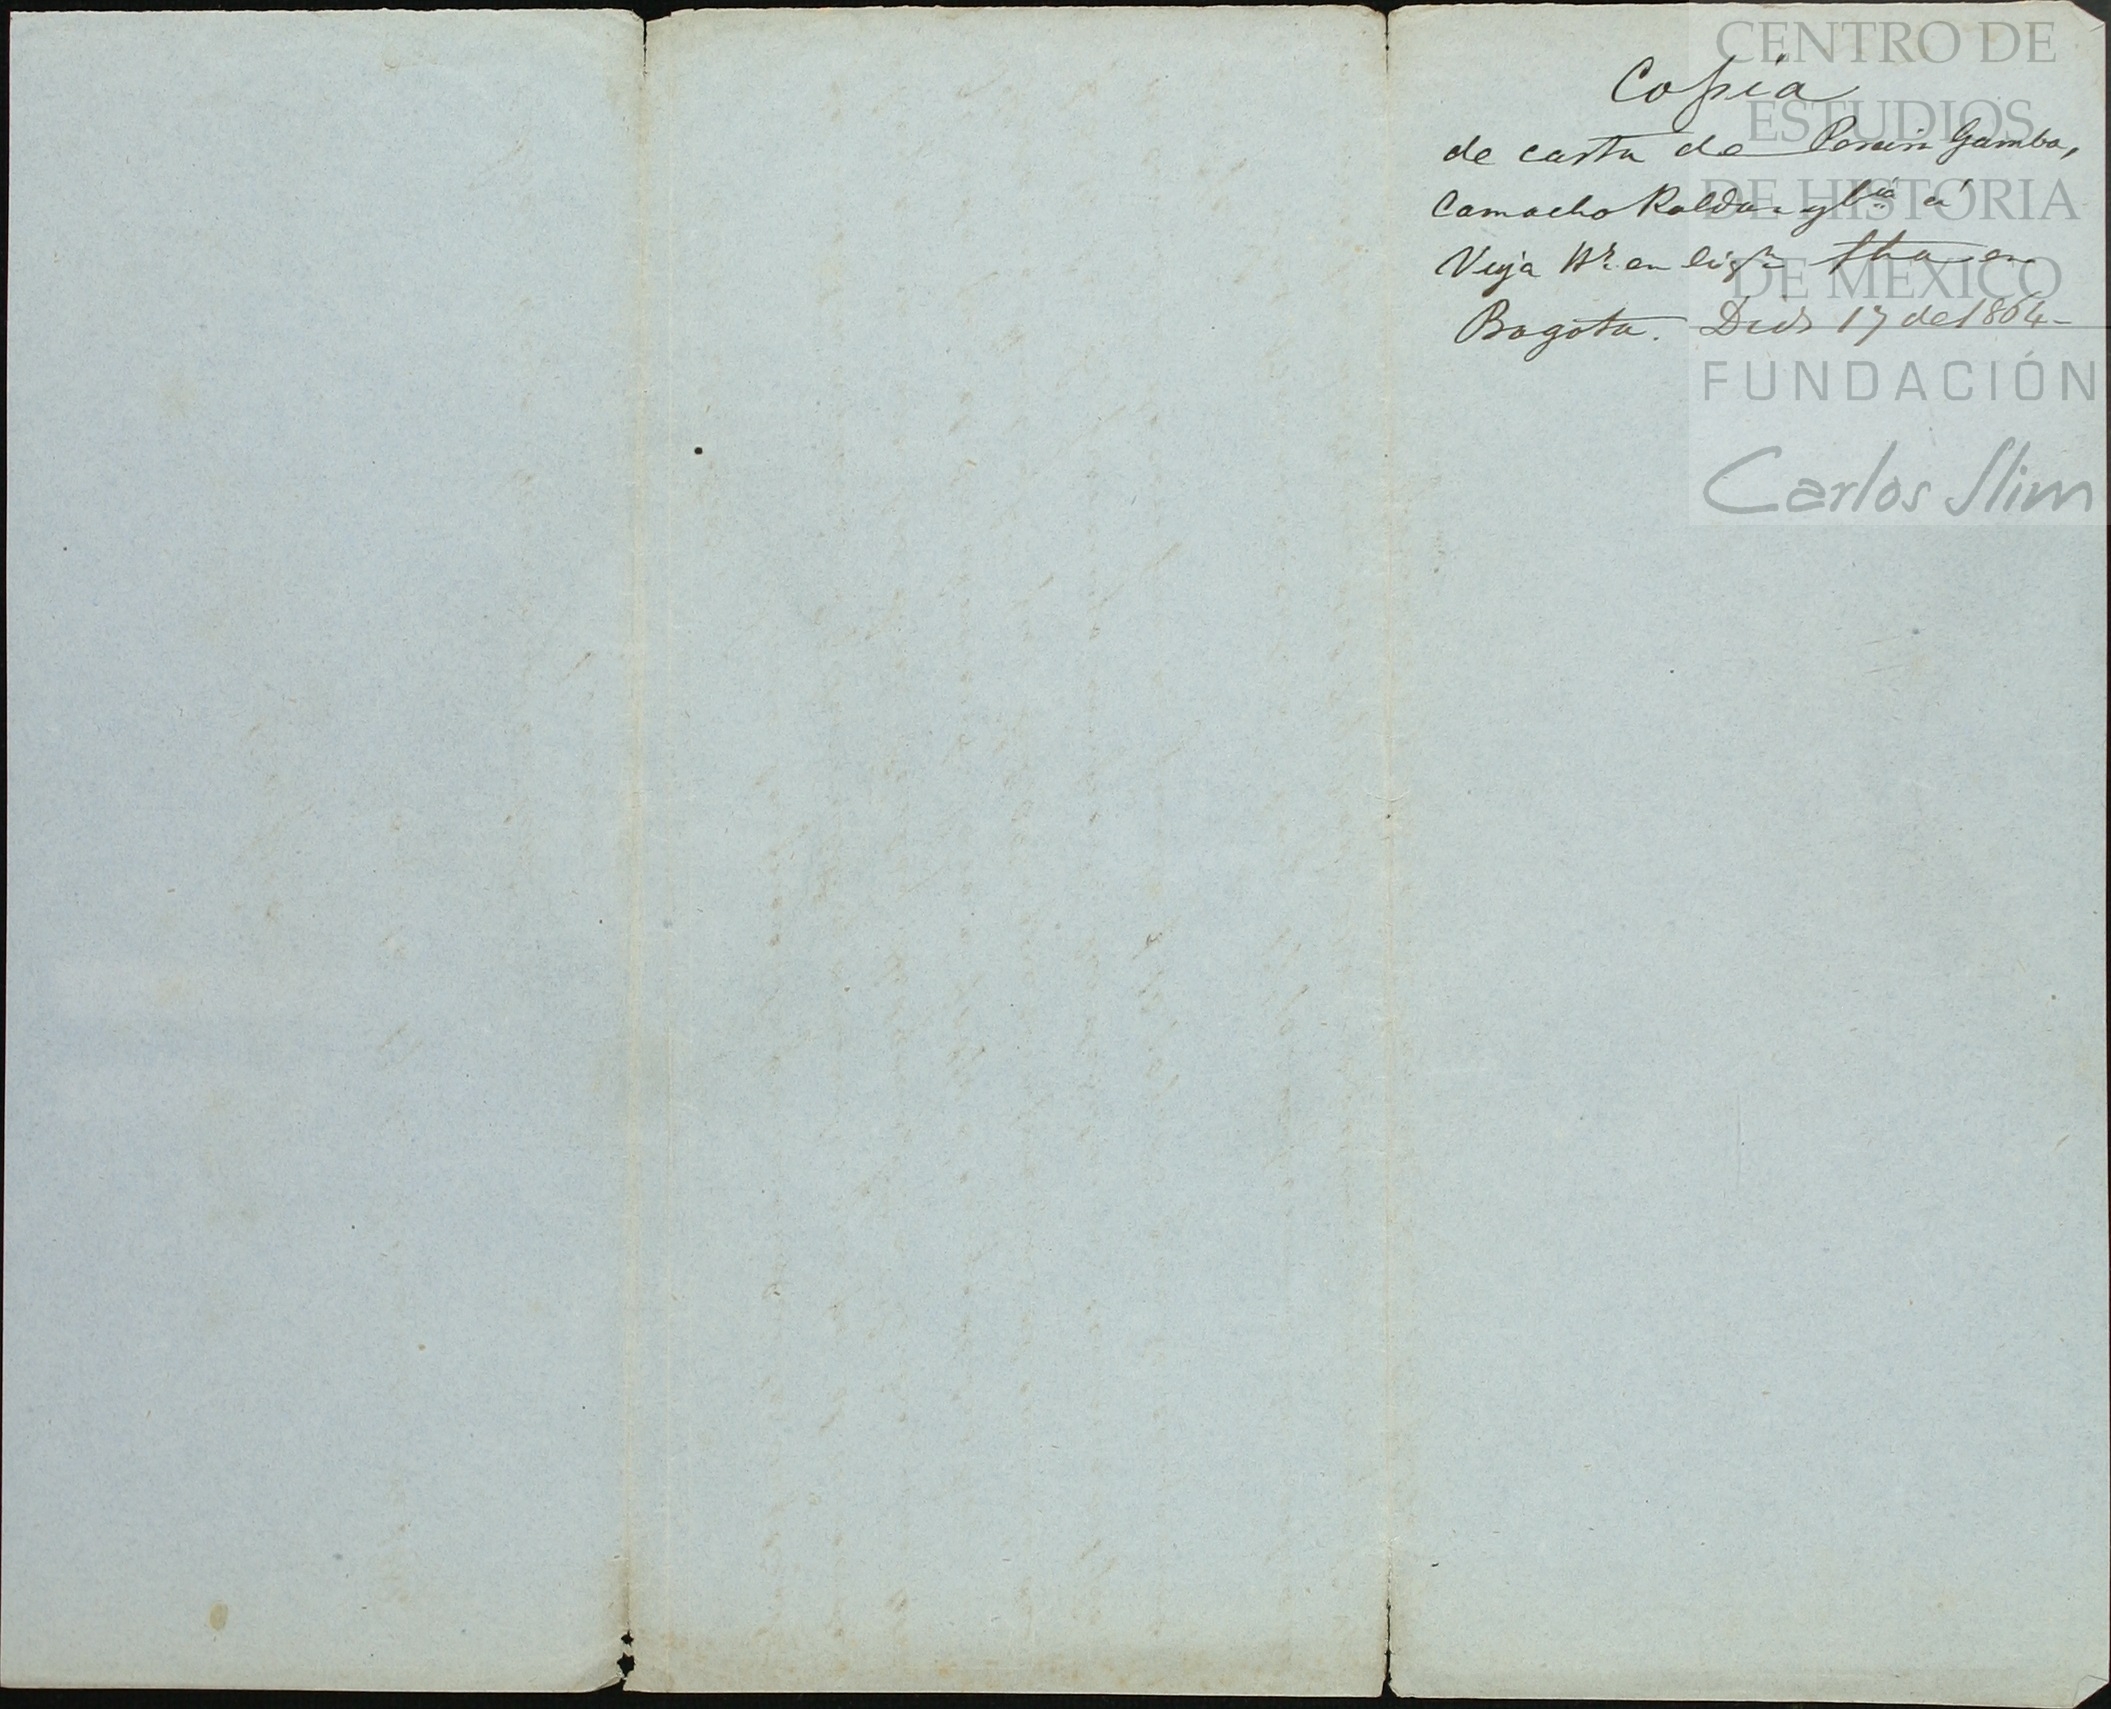 Copia
de carta de Pereira Gamba,
Camacho Roldan y Cía á
Vega Hs. en liqn fha en
Bogota. Dic 17 de 1864-
CENTRO DE
ESTUDIOS
DE HISTORIA
DE MÉXICO
FUNDACIÓN
Carlos Slim